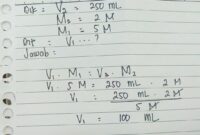 Dik : V₂ = 250 mL
M₂ = 2 M
M₁ = 5 M
Dit : V₁ ... ?
Jawab :
V₁ . M₁ = V₂ . M₂
V₁ . 5 M = 250 mL . 2 M
V₁ = 250 mL . 2 M
5 M
V₁ = 100 mL